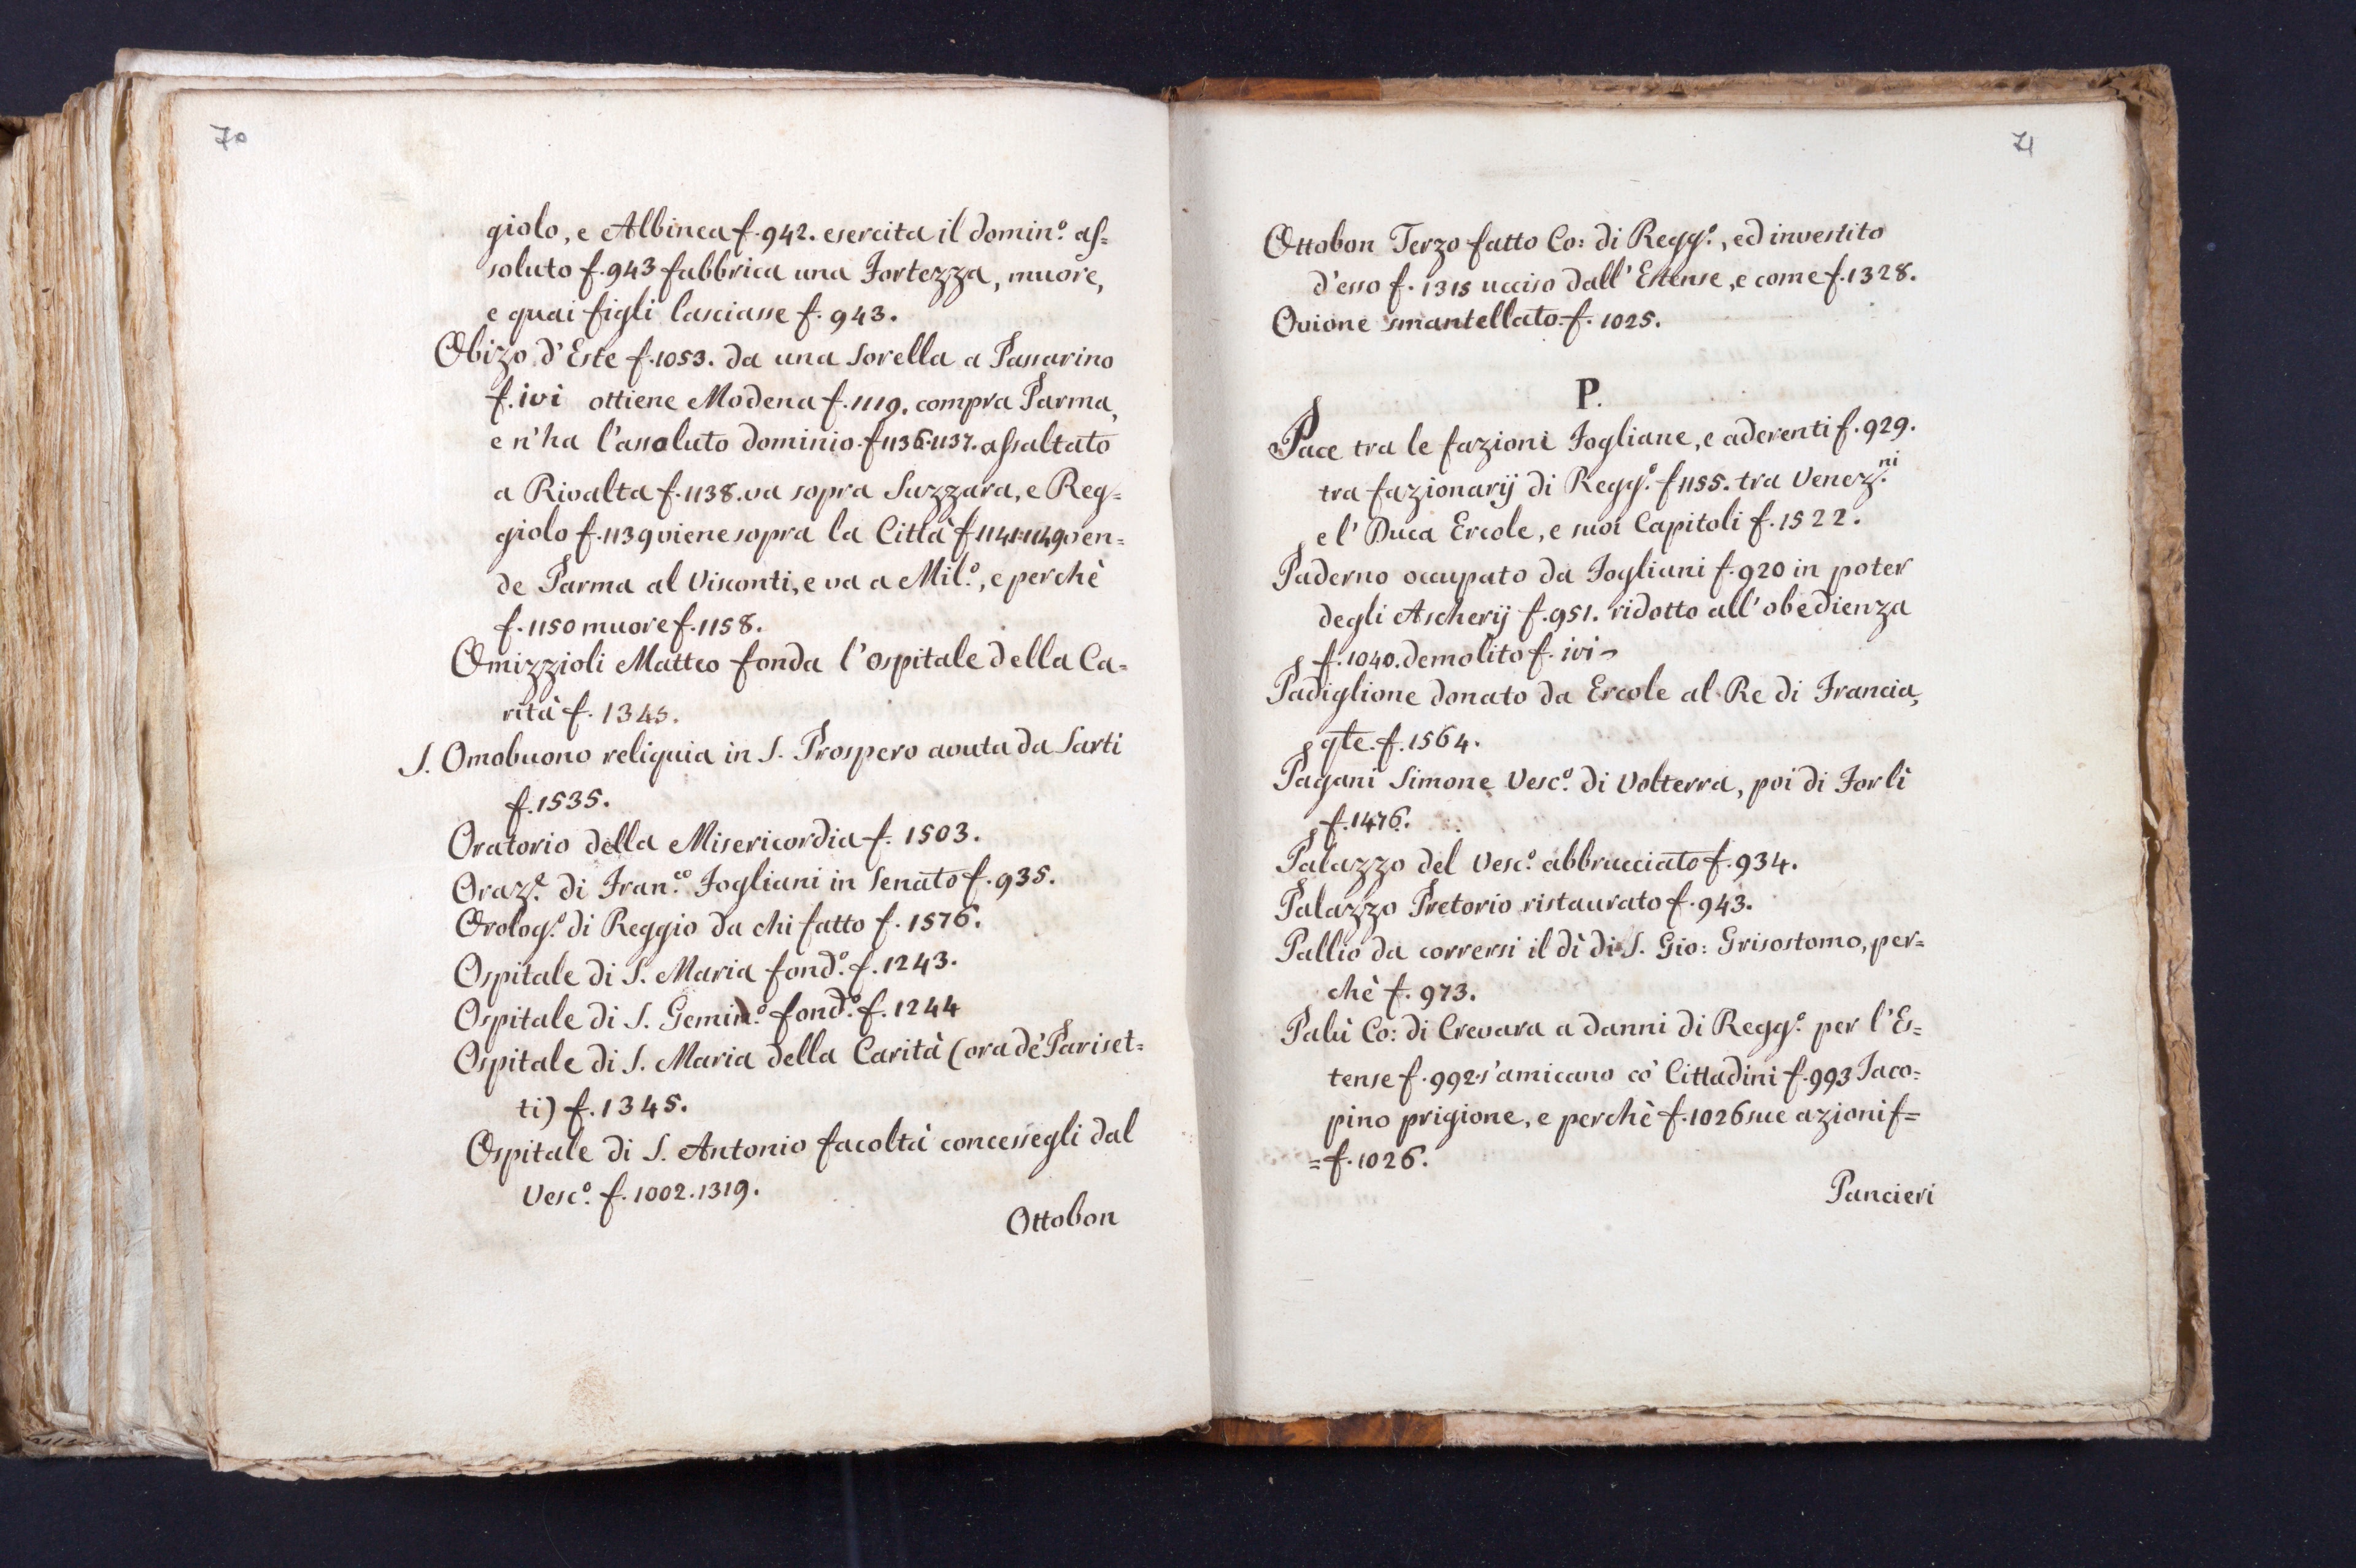 70
giolo, e Albinea f. 942. esercita il domin.º as=
soluto f. 943 fabbrica una Fortezza, muore,
e quai figli lasciasse f. 943.
Obizo d'Este f. 1053. da una Sorella a Passarino
f. ivi ottiene Modena f. 1119. compra Parma,
e n'ha l'assoluto dominio f 1136. 1137. assaltato
a Rivalta f. 1138. va sopra Suzzara, e Reg=
giolo f. 1139 viene sopra la Città f 1141. 1149 ven=
de Parma al Visconti, e va a Mil.º, e perchè
f. 1150 muore f. 1158.
Omizzioli Matteo fonda l'ospitale della Ca=
rità f. 1345.
S. Omobuono reliquia in S. Prospero avuta da Sarti
f. 1535.
Oratorio della Misericordia f. 1503.
Oraz.e di Fran.co Fogliani in Senato f. 935.
Orolog.º di Reggio da chi fatto f. 1576.
Ospitale di S. Maria fond.º f. 1243.
Ospitale di S. Gemin.º fond.º f. 1244
Ospitale di S. Maria della Carità (ora de' Pariset=
ti) f. 1345.
Ospitale di S. Antonio facoltà concessegli dal
Vesc.º f. 1002. 1319.
Ottobon
71
Ottobon Terzo fatto Co: di Regg.º, ed investito
d'esso f. 1315 ucciso dall'Estense, e come f. 1328.
Ovione smantellato f. 1025.
P.
Pace tra le fazioni Fogliane, e aderenti f. 929.
tra fazionarij di Regg.º f 1155. tra Venez.ni
e l' Duca Ercole, e suoi Capitoli f. 1522.
Paderno occupato da Fogliani f. 920 in poter
degli Ascherij f. 951. ridotto all'obedienza
f. 1040. demolito f. ivi
Padiglione donato da Ercole al Re di Francia,
qte. f. 1564.
Pagani Simone Vesc.º di Volterra, poi di Forlì
f. 1476.
Palazzo del Vesc.º abbrucciato f. 934.
Palazzo Pretorio ristaurato f. 943.
Pallio da corrersi il dì di S. Gio: Grisostomo, per=
chè f. 973.
Palù Co: di Crevara a danni di Regg.º per l'Es=
tense f. 992. s'amicano co' Cittadini f. 993 Jaco=
pino prigione, e perchè f. 1026 sue azioni f=
=f. 1026.
Pancieri